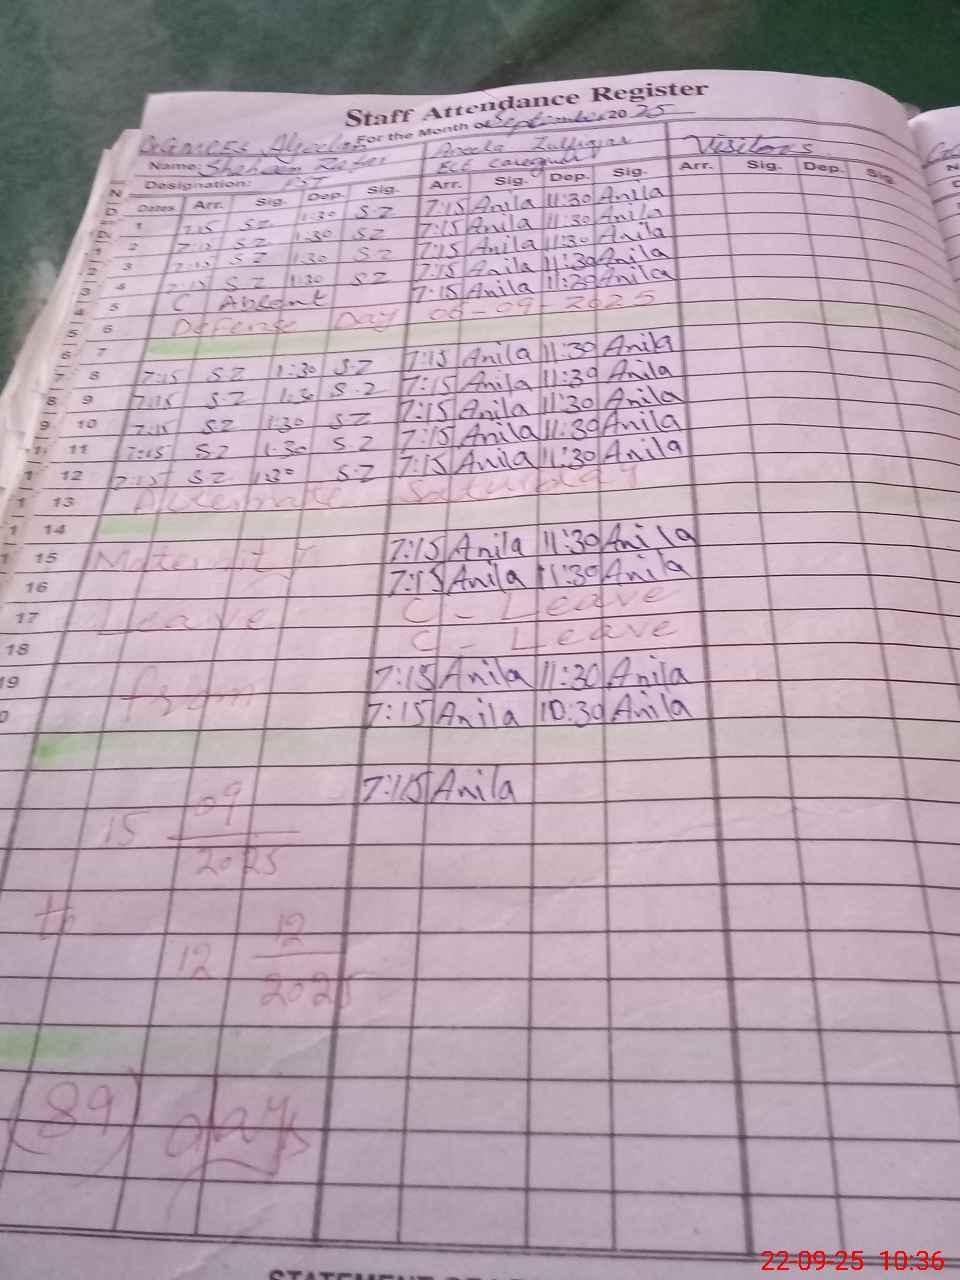 Staff Attendance Register
For the Month of September 2025
Name: Zafar Aneela Zulfiqar Visitors
Designation: PST ECE Caregiver
Dates Arr. Sig. Dep. Sig. Arr. Sig. Dep. Sig. Arr. Sig. Dep. Sig.
1 7:15 SZ 1:30 S.Z 7:15 Anila 11:30 Anila
2 7:15 SZ 1:30 SZ 7:15 Anila 11:30 Anila
3 7:15 SZ 1:30 SZ 7:15 Anila 11:30 Anila
4 7:15 SZ 1:30 SZ 7:15 Anila 11:30 Anila
5 C Absent 7:15 Anila 11:30 Anila
6 Defense Day 06-09-2025
7
8 7:15 SZ 1:30 S.Z 7:15 Anila 11:30 Anila
9 7:15 SZ 1:30 S.Z 7:15 Anila 11:30 Anila
10 7:15 SZ 1:30 SZ 7:15 Anila 11:30 Anila
11 7:15 SZ 1:30 S.Z 7:15 Anila 11:30 Anila
12 7:15 SZ 1:30 S.Z 7:15 Anila 11:30 Anila
13 Alternate Saturday
14
15 Maternity 7:15 Anila 11:30 Anila
16 7:15 Anila 11:30 Anila
17 Leave C - Leave
18 C - Leave
19 from 7:15 Anila 11:30 Anila
7:15 Anila 10:30 Anila
7:15 Anila
15 09
2025
to
12 12
2025
(89) days
22-09-25 10:36